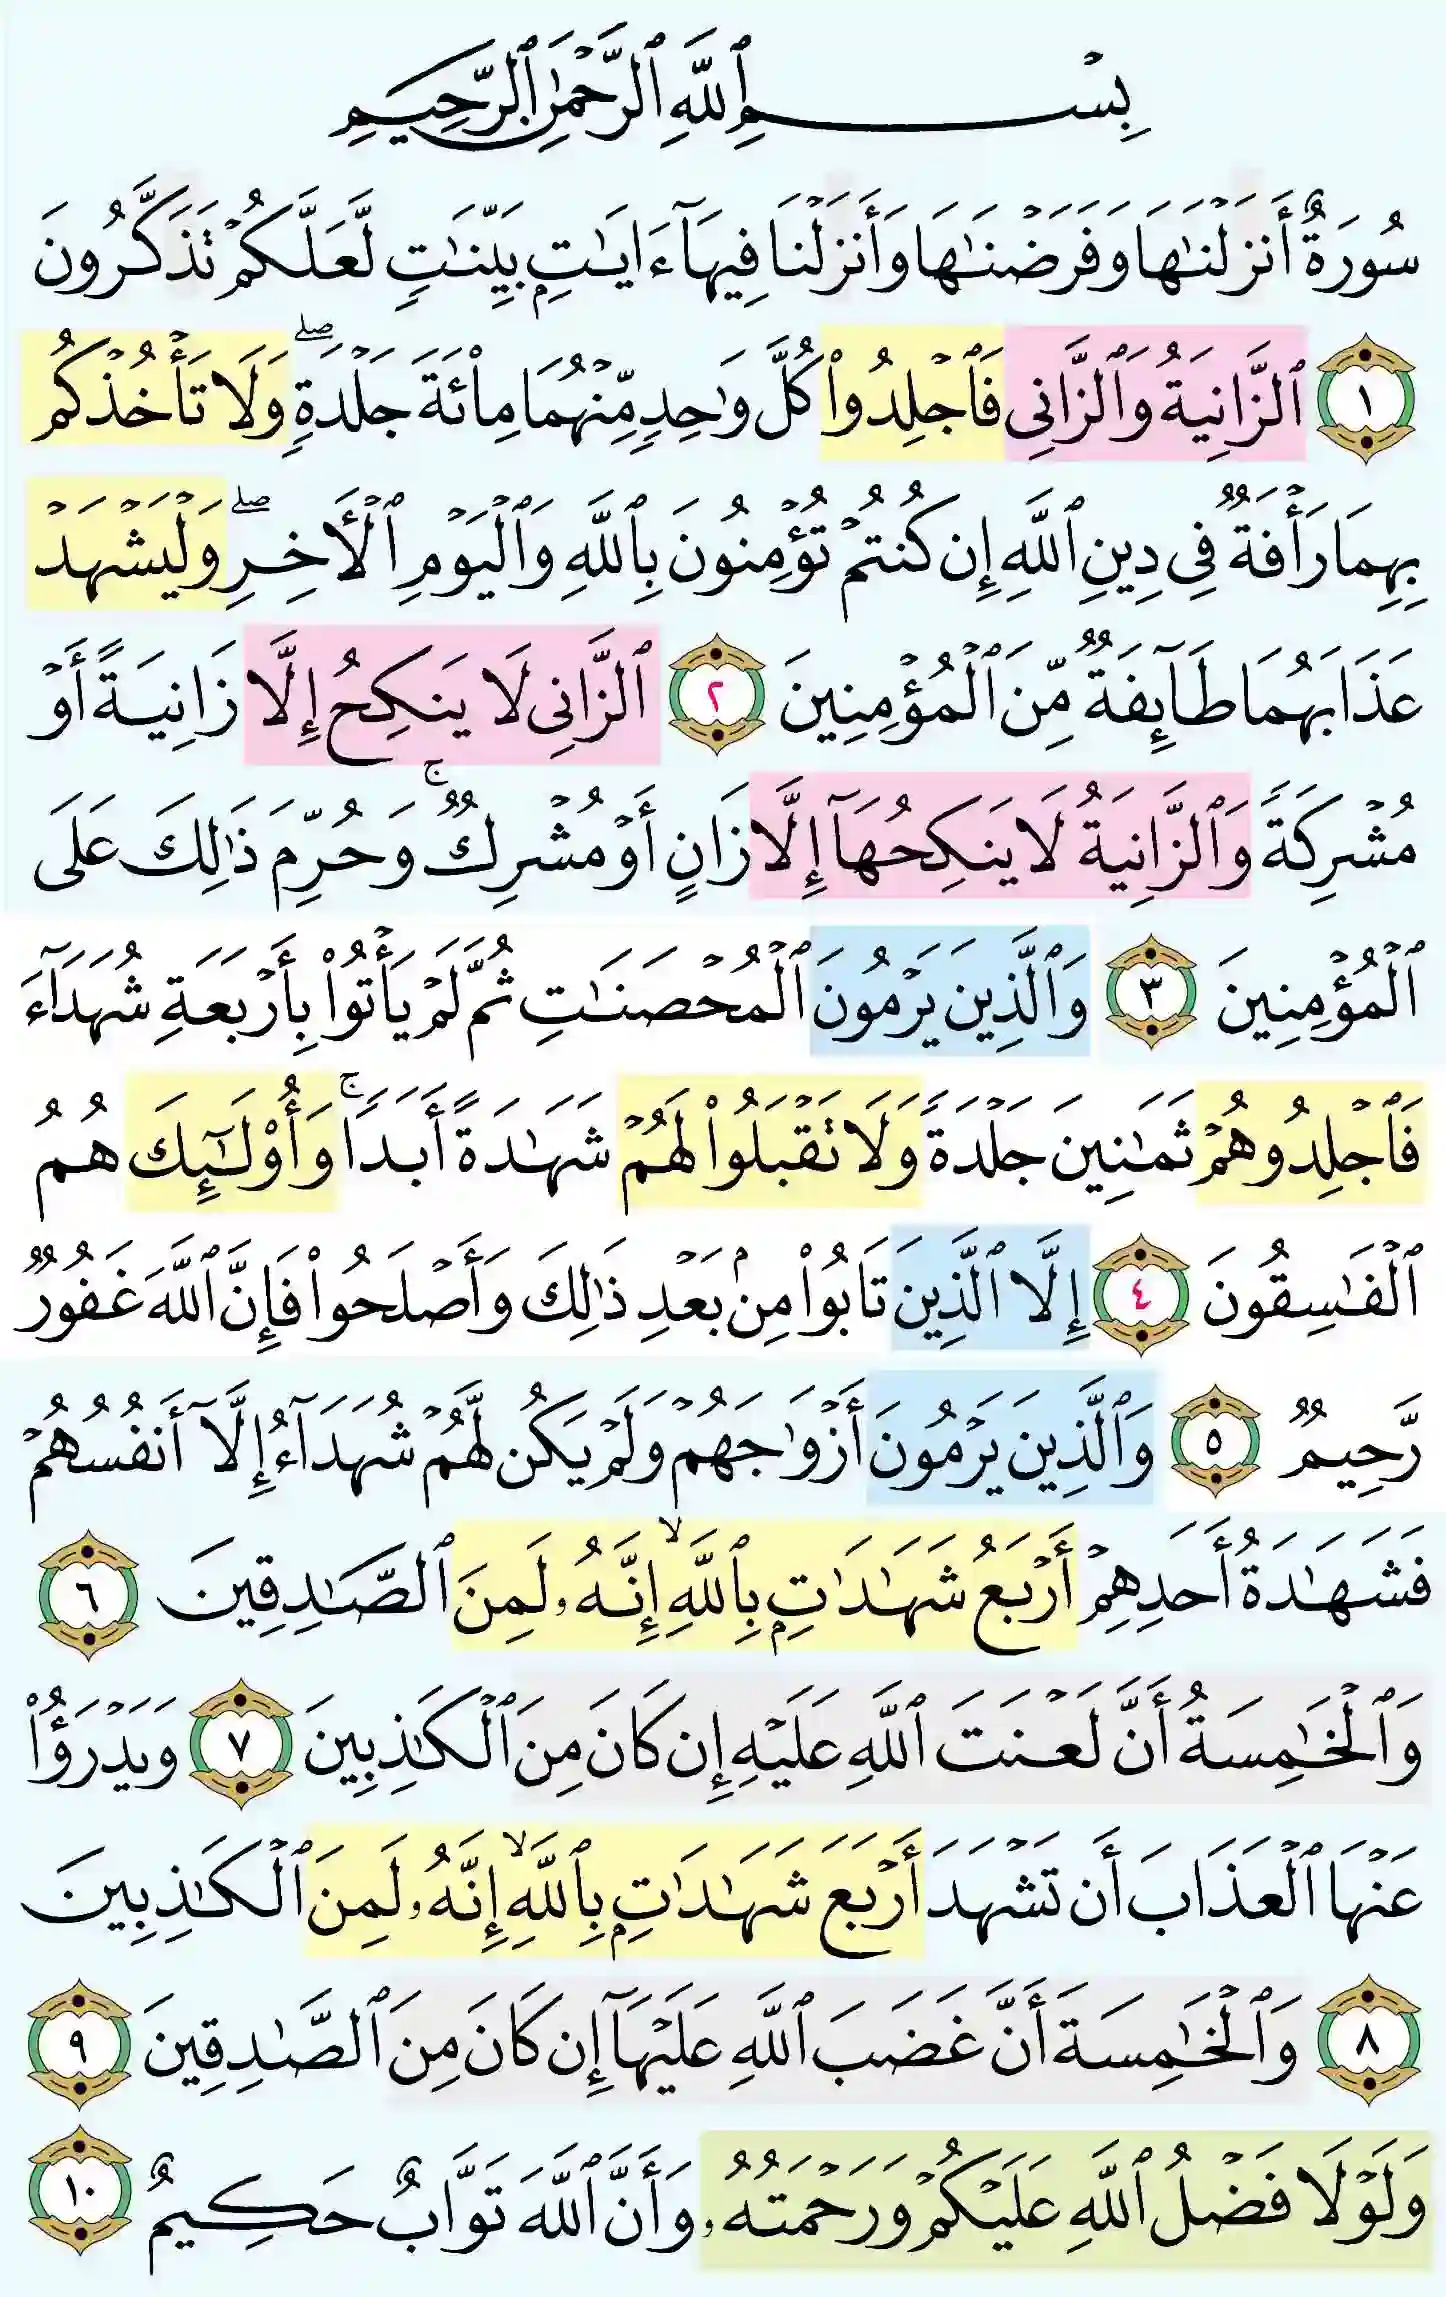 بِسْمِ ٱللَّهِ ٱلرَّحْمَٰنِ ٱلرَّحِيمِ
سُورَةٌ أَنزَلْنَٰهَا وَفَرَضْنَٰهَا وَأَنزَلْنَا فِيهَآ ءَايَٰتٍۭ بَيِّنَٰتٍ لَّعَلَّكُمْ تَذَكَّرُونَ
١ ٱلزَّانِيَةُ وَٱلزَّانِى فَٱجْلِدُوا۟ كُلَّ وَٰحِدٍ مِّنْهُمَا مِا۟ئَةَ جَلْدَةٍ ۖ وَلَا تَأْخُذْكُم
بِهِمَا رَأْفَةٌ فِى دِينِ ٱللَّهِ إِن كُنتُمْ تُؤْمِنُونَ بِٱللَّهِ وَٱلْيَوْمِ ٱلْـَٔاخِرِ ۖ وَلْيَشْهَدْ
عَذَابَهُمَا طَآئِفَةٌ مِّنَ ٱلْمُؤْمِنِينَ ٢ ٱلزَّانِى لَا يَنكِحُ إِلَّا زَانِيَةً أَوْ
مُشْرِكَةً وَٱلزَّانِيَةُ لَا يَنكِحُهَآ إِلَّا زَانٍ أَوْ مُشْرِكٌ ۚ وَحُرِّمَ ذَٰلِكَ عَلَى
ٱلْمُؤْمِنِينَ ٣ وَٱلَّذِينَ يَرْمُونَ ٱلْمُحْصَنَٰتِ ثُمَّ لَمْ يَأْتُوا۟ بِأَرْبَعَةِ شُهَدَآءَ
فَٱجْلِدُوهُمْ ثَمَٰنِينَ جَلْدَةً وَلَا تَقْبَلُوا۟ لَهُمْ شَهَٰدَةً أَبَدًا ۚ وَأُو۟لَٰٓئِكَ هُمُ
ٱلْفَٰسِقُونَ ٤ إِلَّا ٱلَّذِينَ تَابُوا۟ مِنۢ بَعْدِ ذَٰلِكَ وَأَصْلَحُوا۟ فَإِنَّ ٱللَّهَ غَفُورٌ
رَّحِيمٌ ٥ وَٱلَّذِينَ يَرْمُونَ أَزْوَٰجَهُمْ وَلَمْ يَكُن لَّهُمْ شُهَدَآءُ إِلَّآ أَنفُسُهُمْ
فَشَهَٰدَةُ أَحَدِهِمْ أَرْبَعُ شَهَٰدَٰتٍۭ بِٱللَّهِ ۙ إِنَّهُۥ لَمِنَ ٱلصَّٰدِقِينَ ٦
وَٱلْخَٰمِسَةُ أَنَّ لَعْنَتَ ٱللَّهِ عَلَيْهِ إِن كَانَ مِنَ ٱلْكَٰذِبِينَ ٧ وَيَدْرَؤُا۟
عَنْهَا ٱلْعَذَابَ أَن تَشْهَدَ أَرْبَعَ شَهَٰدَٰتٍۭ بِٱللَّهِ ۙ إِنَّهُۥ لَمِنَ ٱلْكَٰذِبِينَ
٨ وَٱلْخَٰمِسَةَ أَنَّ غَضَبَ ٱللَّهِ عَلَيْهَآ إِن كَانَ مِنَ ٱلصَّٰدِقِينَ ٩
وَلَوْلَا فَضْلُ ٱللَّهِ عَلَيْكُمْ وَرَحْمَتُهُۥ وَأَنَّ ٱللَّهَ تَوَّابٌ حَكِيمٌ ١٠